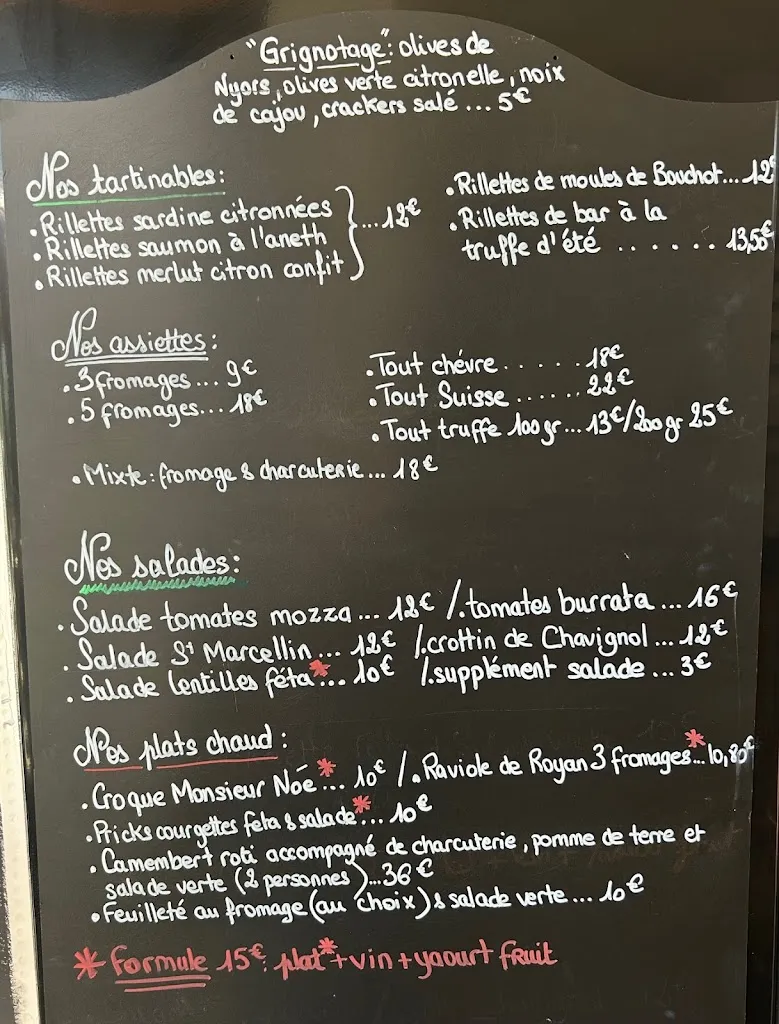 "Grignotage": olives de
Nyors, olives verte citronelle, noix
de cajou, crackers salé ... 5€
Nos tartinables:
.Rillettes sardine citronnées
.Rillettes saumon à l'aneth
.Rillettes merlut citron confit
} ....12€
.Rillettes de moules de Bouchot... 12
.Rillettes de bar à la
truffe d'été ...... 13,50€
Nos assiettes:
.3 fromages... 9€
.5 fromages... 18€
.Tout chévre ..... 18€
.Tout Suisse ...... 22€
.Tout truffe 100gr... 13€/200gr 25€
.Mixte: fromage & charcuterie ... 18€
Nos salades:
.Salade tomates mozza ... 12€ /.tomates burrata ... 16€
.Salade St Marcellin ... 12€ /.crottin de Chavignol ... 12€
.Salade lentilles féta* ... 10€ /.supplément salade ... 3€
Nos plats chaud:
.Croque Monsieur Noé* ... 10€ /.Raviole de Royan 3 fromages*...10,80€
.Bricks courgettes feta & salade* ... 10€
.Camembert roti accompagné de charcuterie, pomme de terre et
salade verte (2 personnes)...36€
.Feuilleté au fromage (au choix) & salade verte ... 10€
* Formule 15€: plat* + vin + yaourt fruit